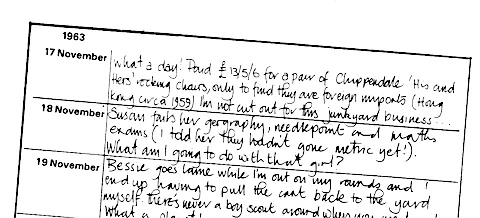 1963
17 November What a day! Paid £13/5/6 for a pair of Chippendale 'His and
Hers' rocking chairs, only to find they are foreign imports (Hong
Kong circa 1959) I'm not cut out for this junkyard business...
18 November Susan fails her geography, needlepoint and maths
exams (I told her they hadn't gone metric yet!).
What am I going to do with that girl?
19 November Bessie goes lame while I'm out on my rounds and I
end up having to pull the cart back to the yard
myself. There's never a boy scout around when you
What a